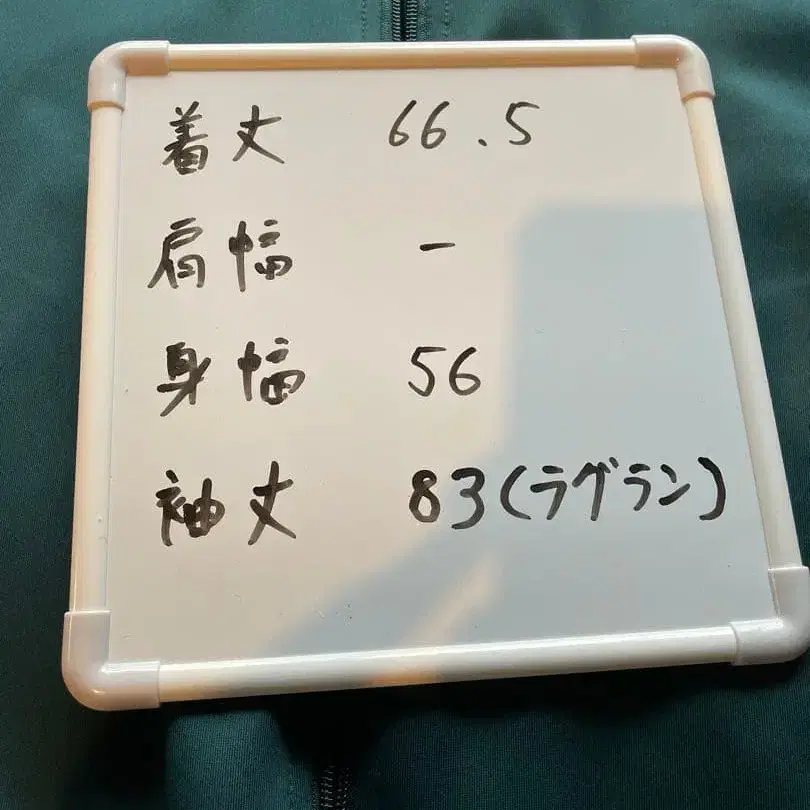 着丈 66.5
肩幅 -
身幅 56
袖丈 83(ラグラン)